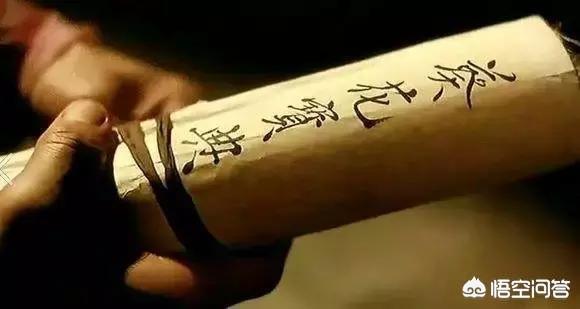 葵花寳典
悟空问答